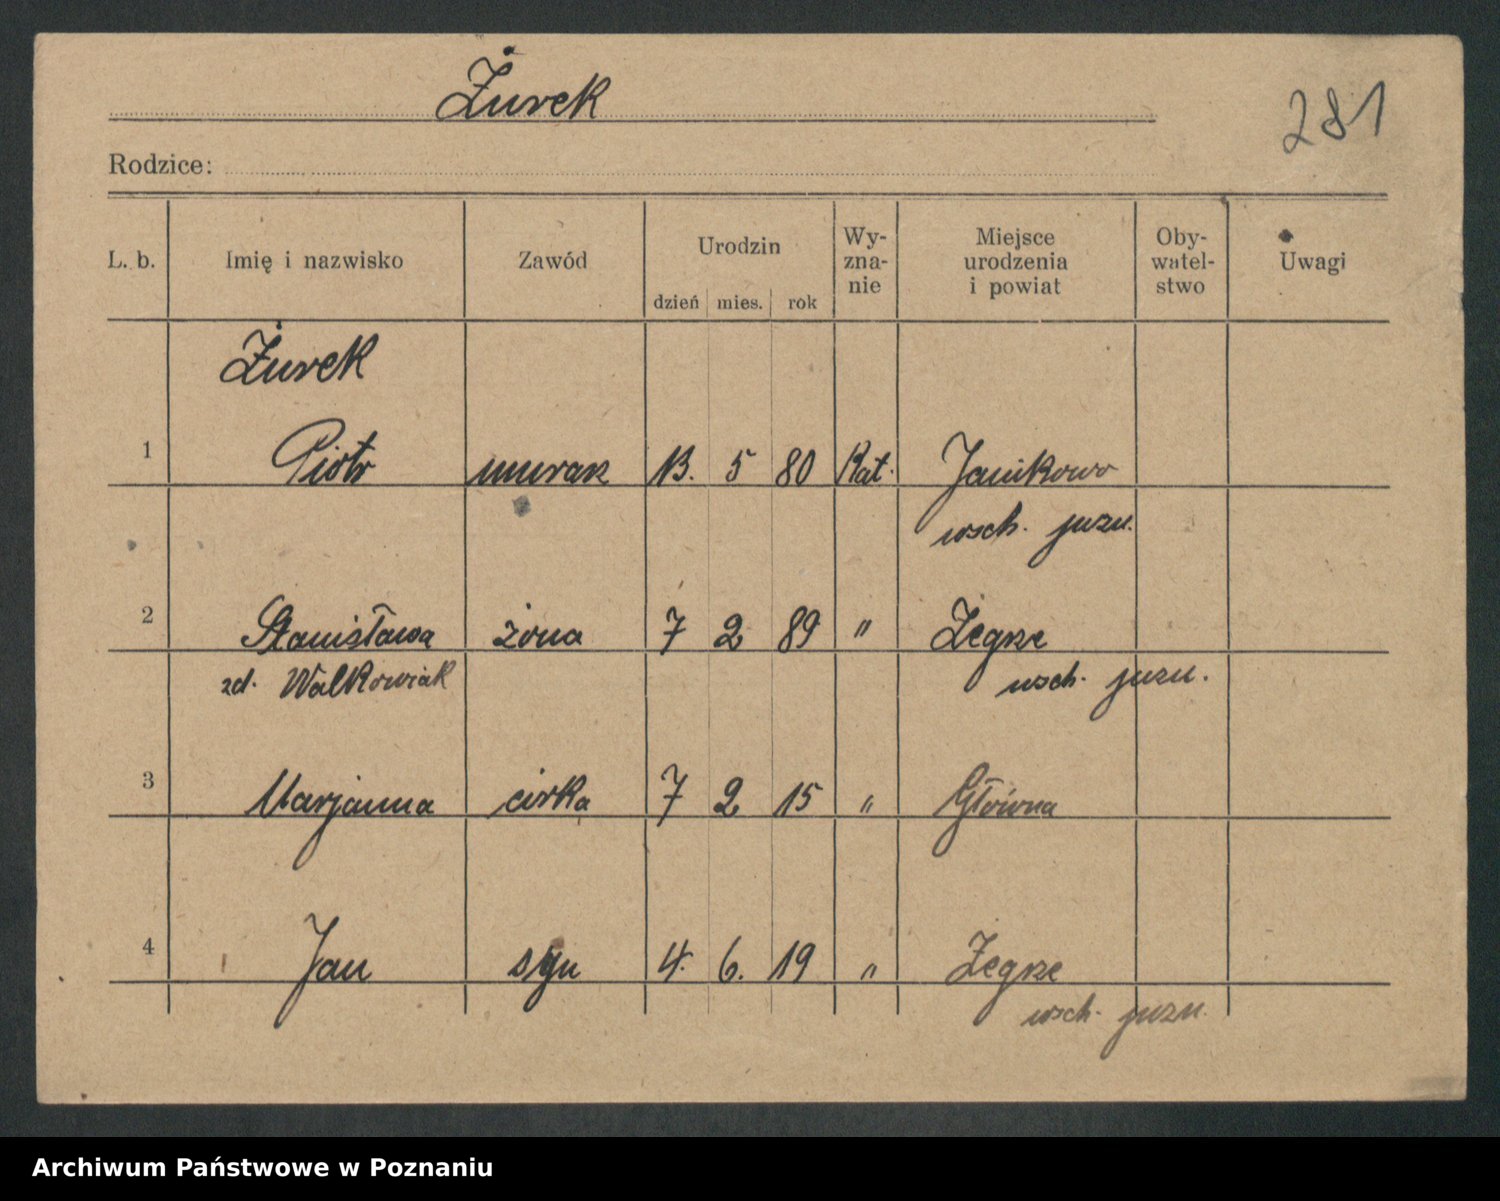 Żurek
281
Rodzice:
L. b. Imię i nazwisko Zawód Urodzin dzień mies. rok Wy-zna-nie Miejsce urodzenia i powiat Oby-watel-stwo Uwagi
Żurek
1 Piotr murarz 13. 5 80 Kat. Janikowo
wsch. pozn.
2 Stanisława żona 7 2 89 " Żegrze
zd. Walkowiak wsch. pozn.
3 Marjanna córka 7 2 15 " Główna
4 Jan syn 4. 6. 19 " Żegrze
wsch. pozn.
Archiwum Państwowe w Poznaniu